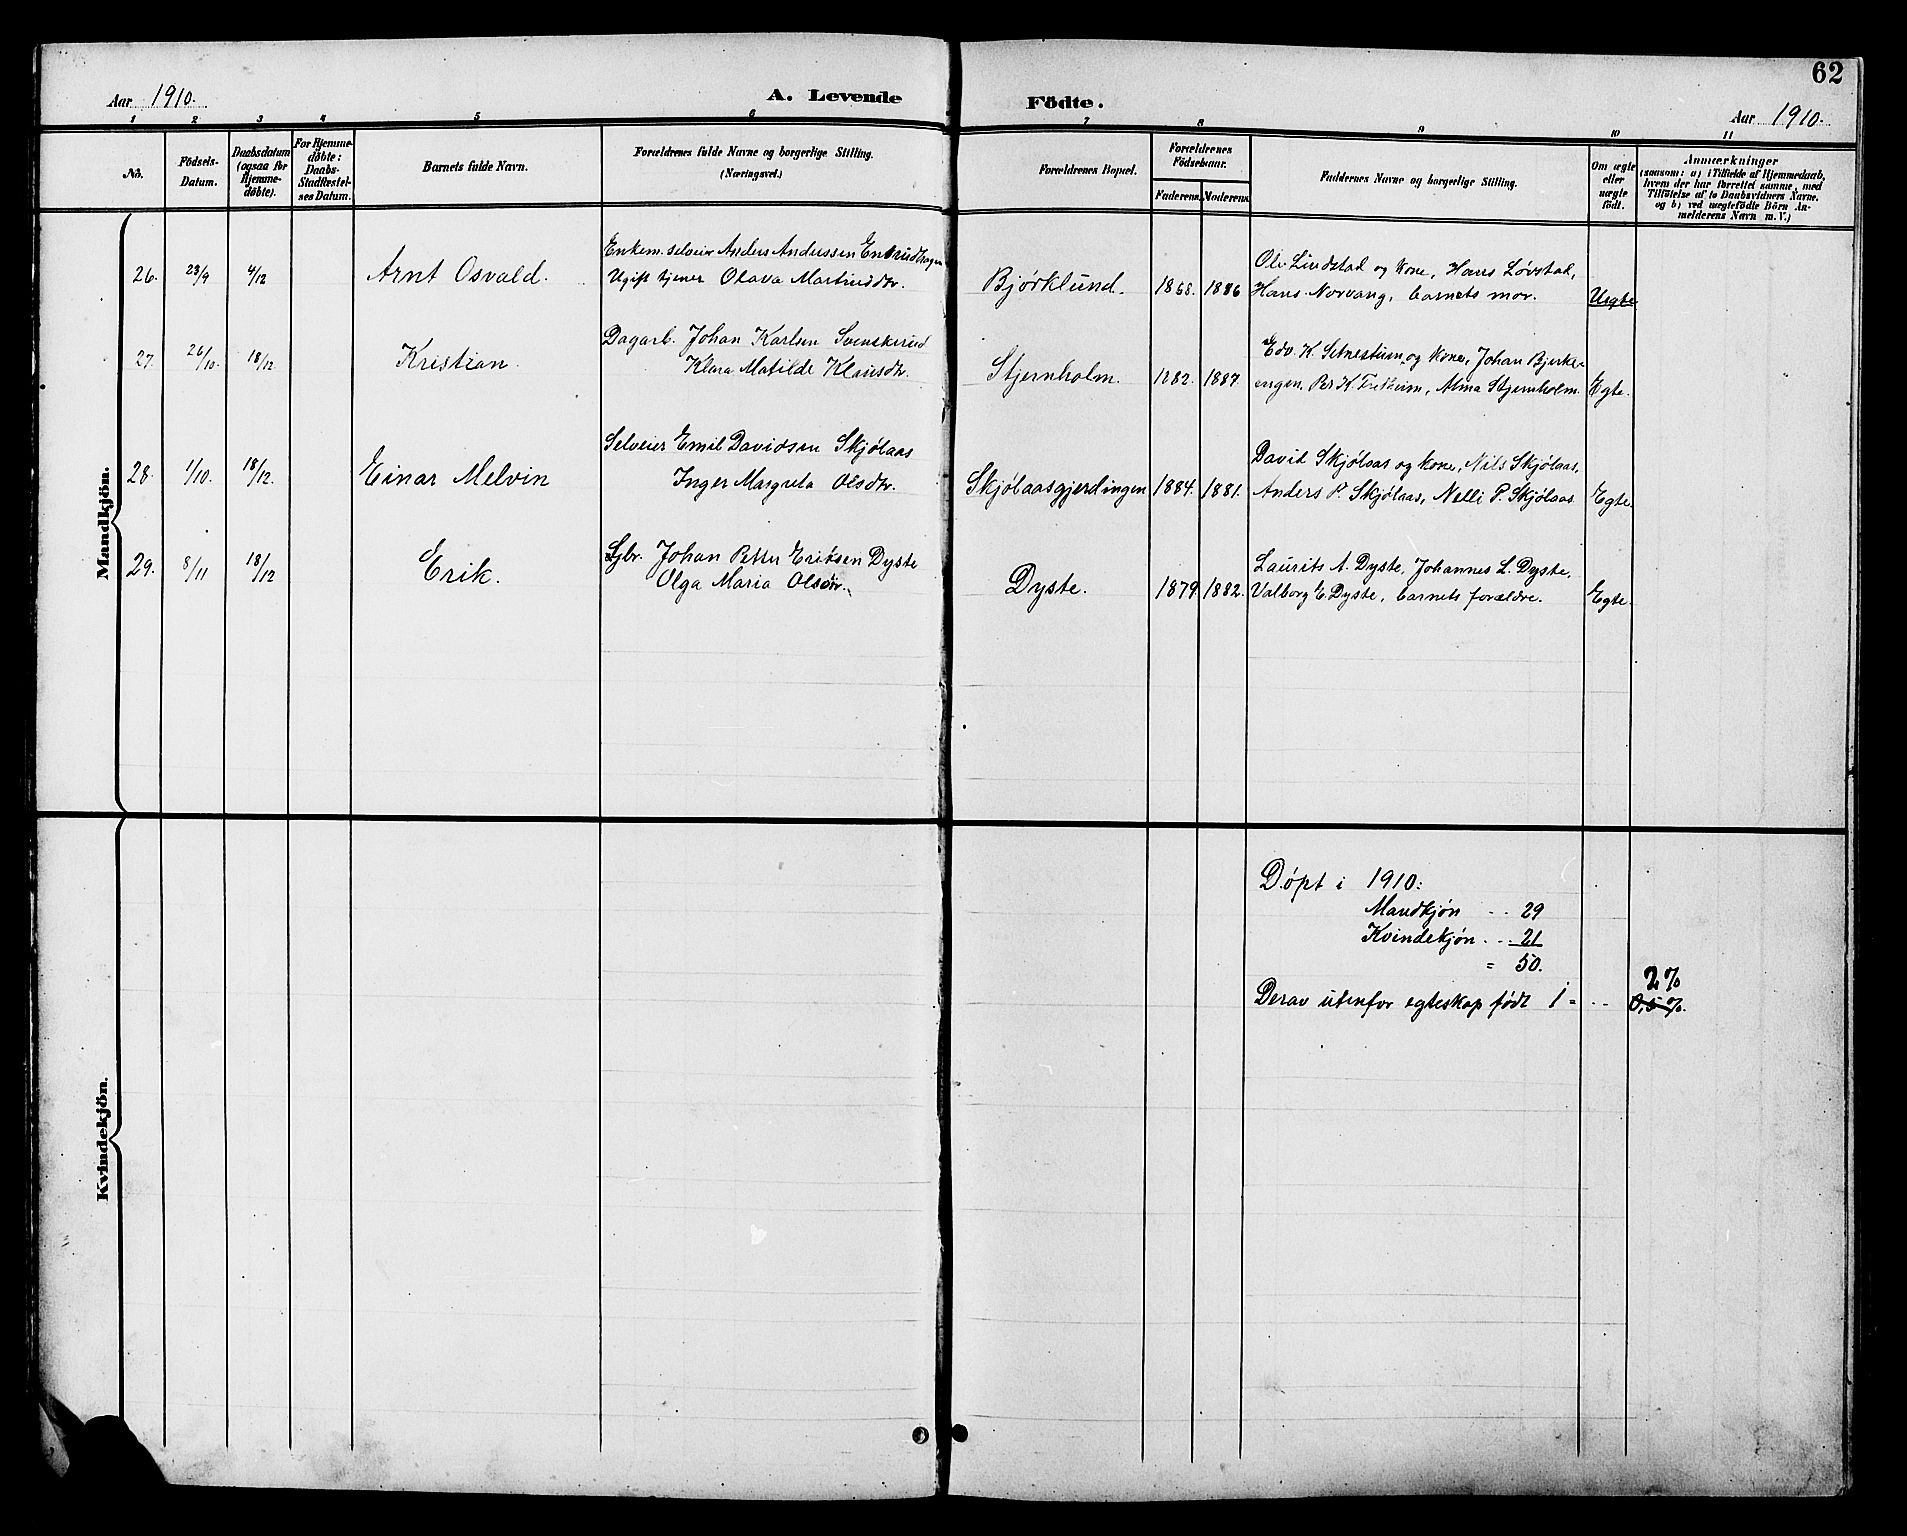 62
Aar 1910.
A. Levende Födte.
Aar 1910.
1 2 3 4 5 6 7 8 9 10 11
No.
Födsels-Datum.
Daabsdatum (ogsaa for Hjemmedöbte).
For Hjemmedöbte: Daabs-Stadfæstelses Datum.
Barnets fulde Navn.
Forældrenes fulde Navne og borgerlige Stilling.
(Næringsvei.)
Forældrenes Bopæl.
Forældrenes Födselsaar.
Faderens. Moderens.
Faddernes Navne og borgerlige Stilling.
Om ægte eller uægte födt.
Anmærkninger
(saasom: a) i Tilfælde af Hjemmedaab, hvem der har forrettet samme, med Tilföielse af to Daabsvidners Navne, og b) ved uægtefödte Börn Anmelderens Navn m. V.)
Mandkjön.
26. 23/9 4/12 Arnt Osvald.
Enkem. selveier Anders Andersen
Ugift tjener Olava Martinsdtr.
Bjørklund. 1868. 1886
Ole Lindstad og kone, Hans Løvstad,
Hans Norvang, barnets mor.
Uegte
27. 26/10. 18/12 Kristian.
Dagarb. Johan Karlsen Svenskerud
Klara Matilde Klausdtr.
Stjernholm. 1882. 1887.
Edv. K. Setnestum og kone, Johan Bjerke-
engen, Per K. Alma Stjernholm.
Egte.
28. 1/10. 18/12. Einar Melvin
Selveier Emil Davidsen Skjølaas
Inger Margreta Olsdtr.
Skjølaasgjerdingen 1884. 1881.
David Skjølaas og kone, Nils Skjølaas,
Anders P. Skjølaas, Nelli P. Skjølaas
Egte.
29. 8/11 18/12 Erik.
Gjbr. Johan Petter Eriksen Dyste
Olga Maria Olsdtr.
Dyste. 1879 1882.
Laurits A. Dyste, Johannes L. Dyste,
Valborg E. Dyste, barnets forældre.
Egte.
Kvindekjön.
Døpt i 1910:
Mandkjøn .. 29
Kvindekjøn .. 21
= 50.
Derav utenfor egteskap født 1 = .. 2%
0,5%.